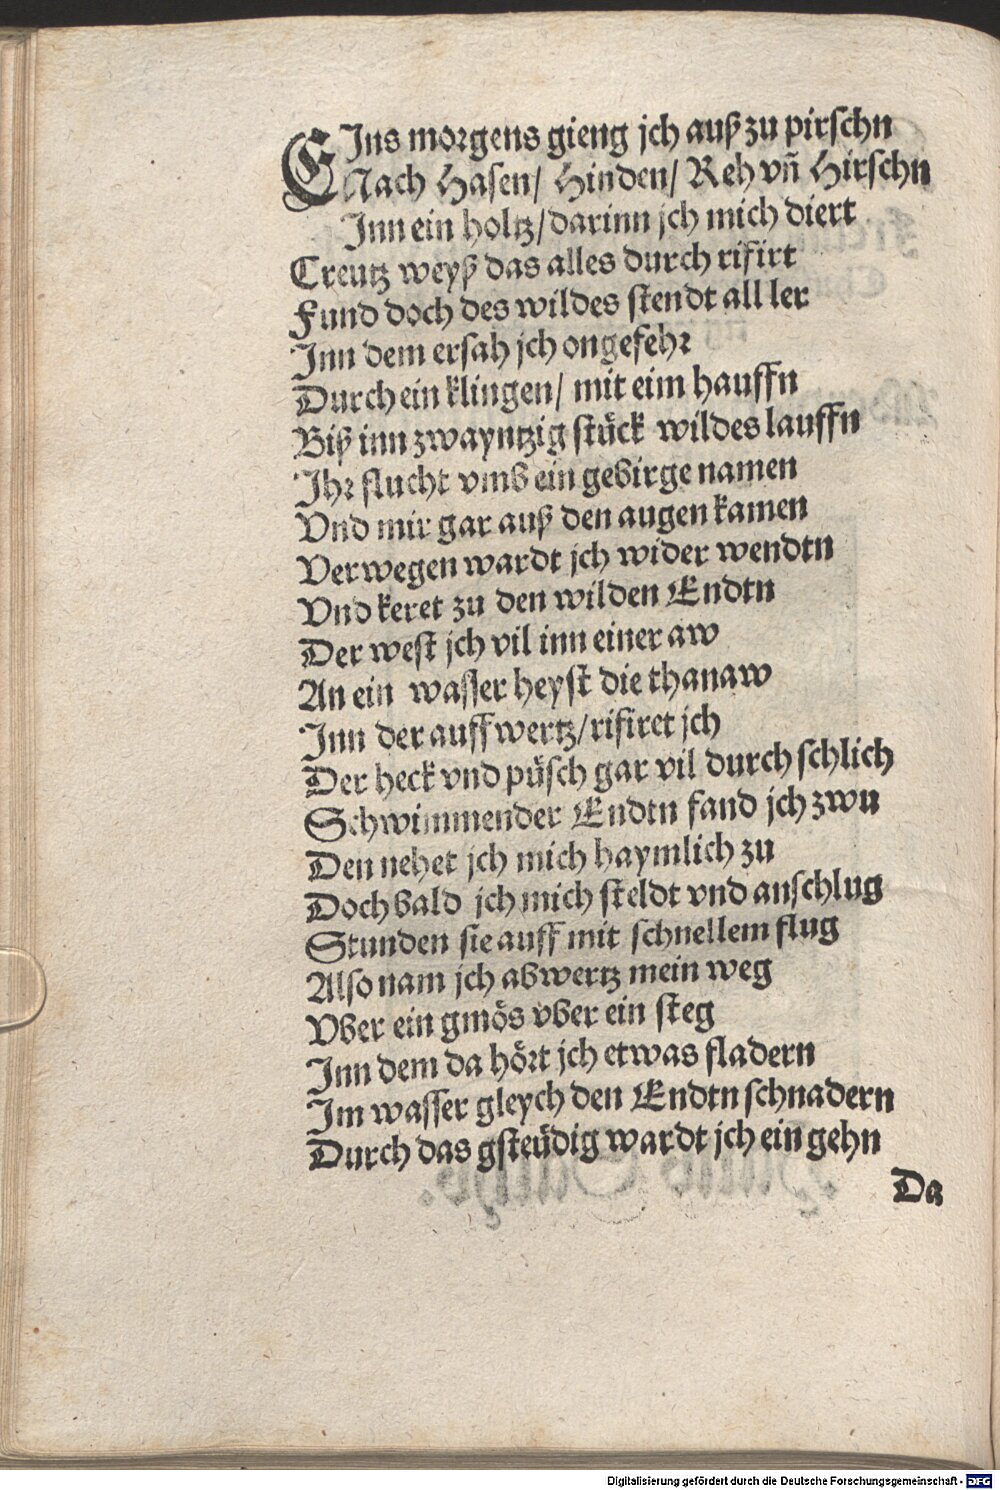 EJns morgens gieng jch auß zu pirschn
Nach Hasen/ Hinden/ Reh vñ Hirschn
Jnn ein holtz/darinn jch mich diert
Creutz weyß das alles durch rifirt
Fund doch des wildes stendt all ler
Jnn dem ersah jch ongefehr
Durch ein klingen/ mit eim hauffn
Biß inn zwayntzig stück wildes lauffn
Jhr flucht vmb ein gebirge namen
Vnd mir gar auß den augen kamen
Verwegen wardt jch wider wendtn
Vnd keret zu den wilden Endtn
Der west jch vil inn einer aw
An ein wasser heyst die thanaw
Jnn der auffwertz/rifiret jch
Der heck vnd püsch gar vil durch schlich
Schwimmender Endtn fand jch zwu
Den nehet jch mich haymlich zu
Doch bald jch mich steldt vnd anschlug
Stunden sie auff mit schnellem flug
Also nam jch abwertz mein weg
Vber ein gmös vber ein steg
Jnn dem da hört jch etwas fladern
Jm wasser gleych den Endtn schnadern
Durch das gsteüdig wardt jch ein gehn
Da
Digitalisierung gefördert durch die Deutsche Forschungsgemeinschaft - DFG